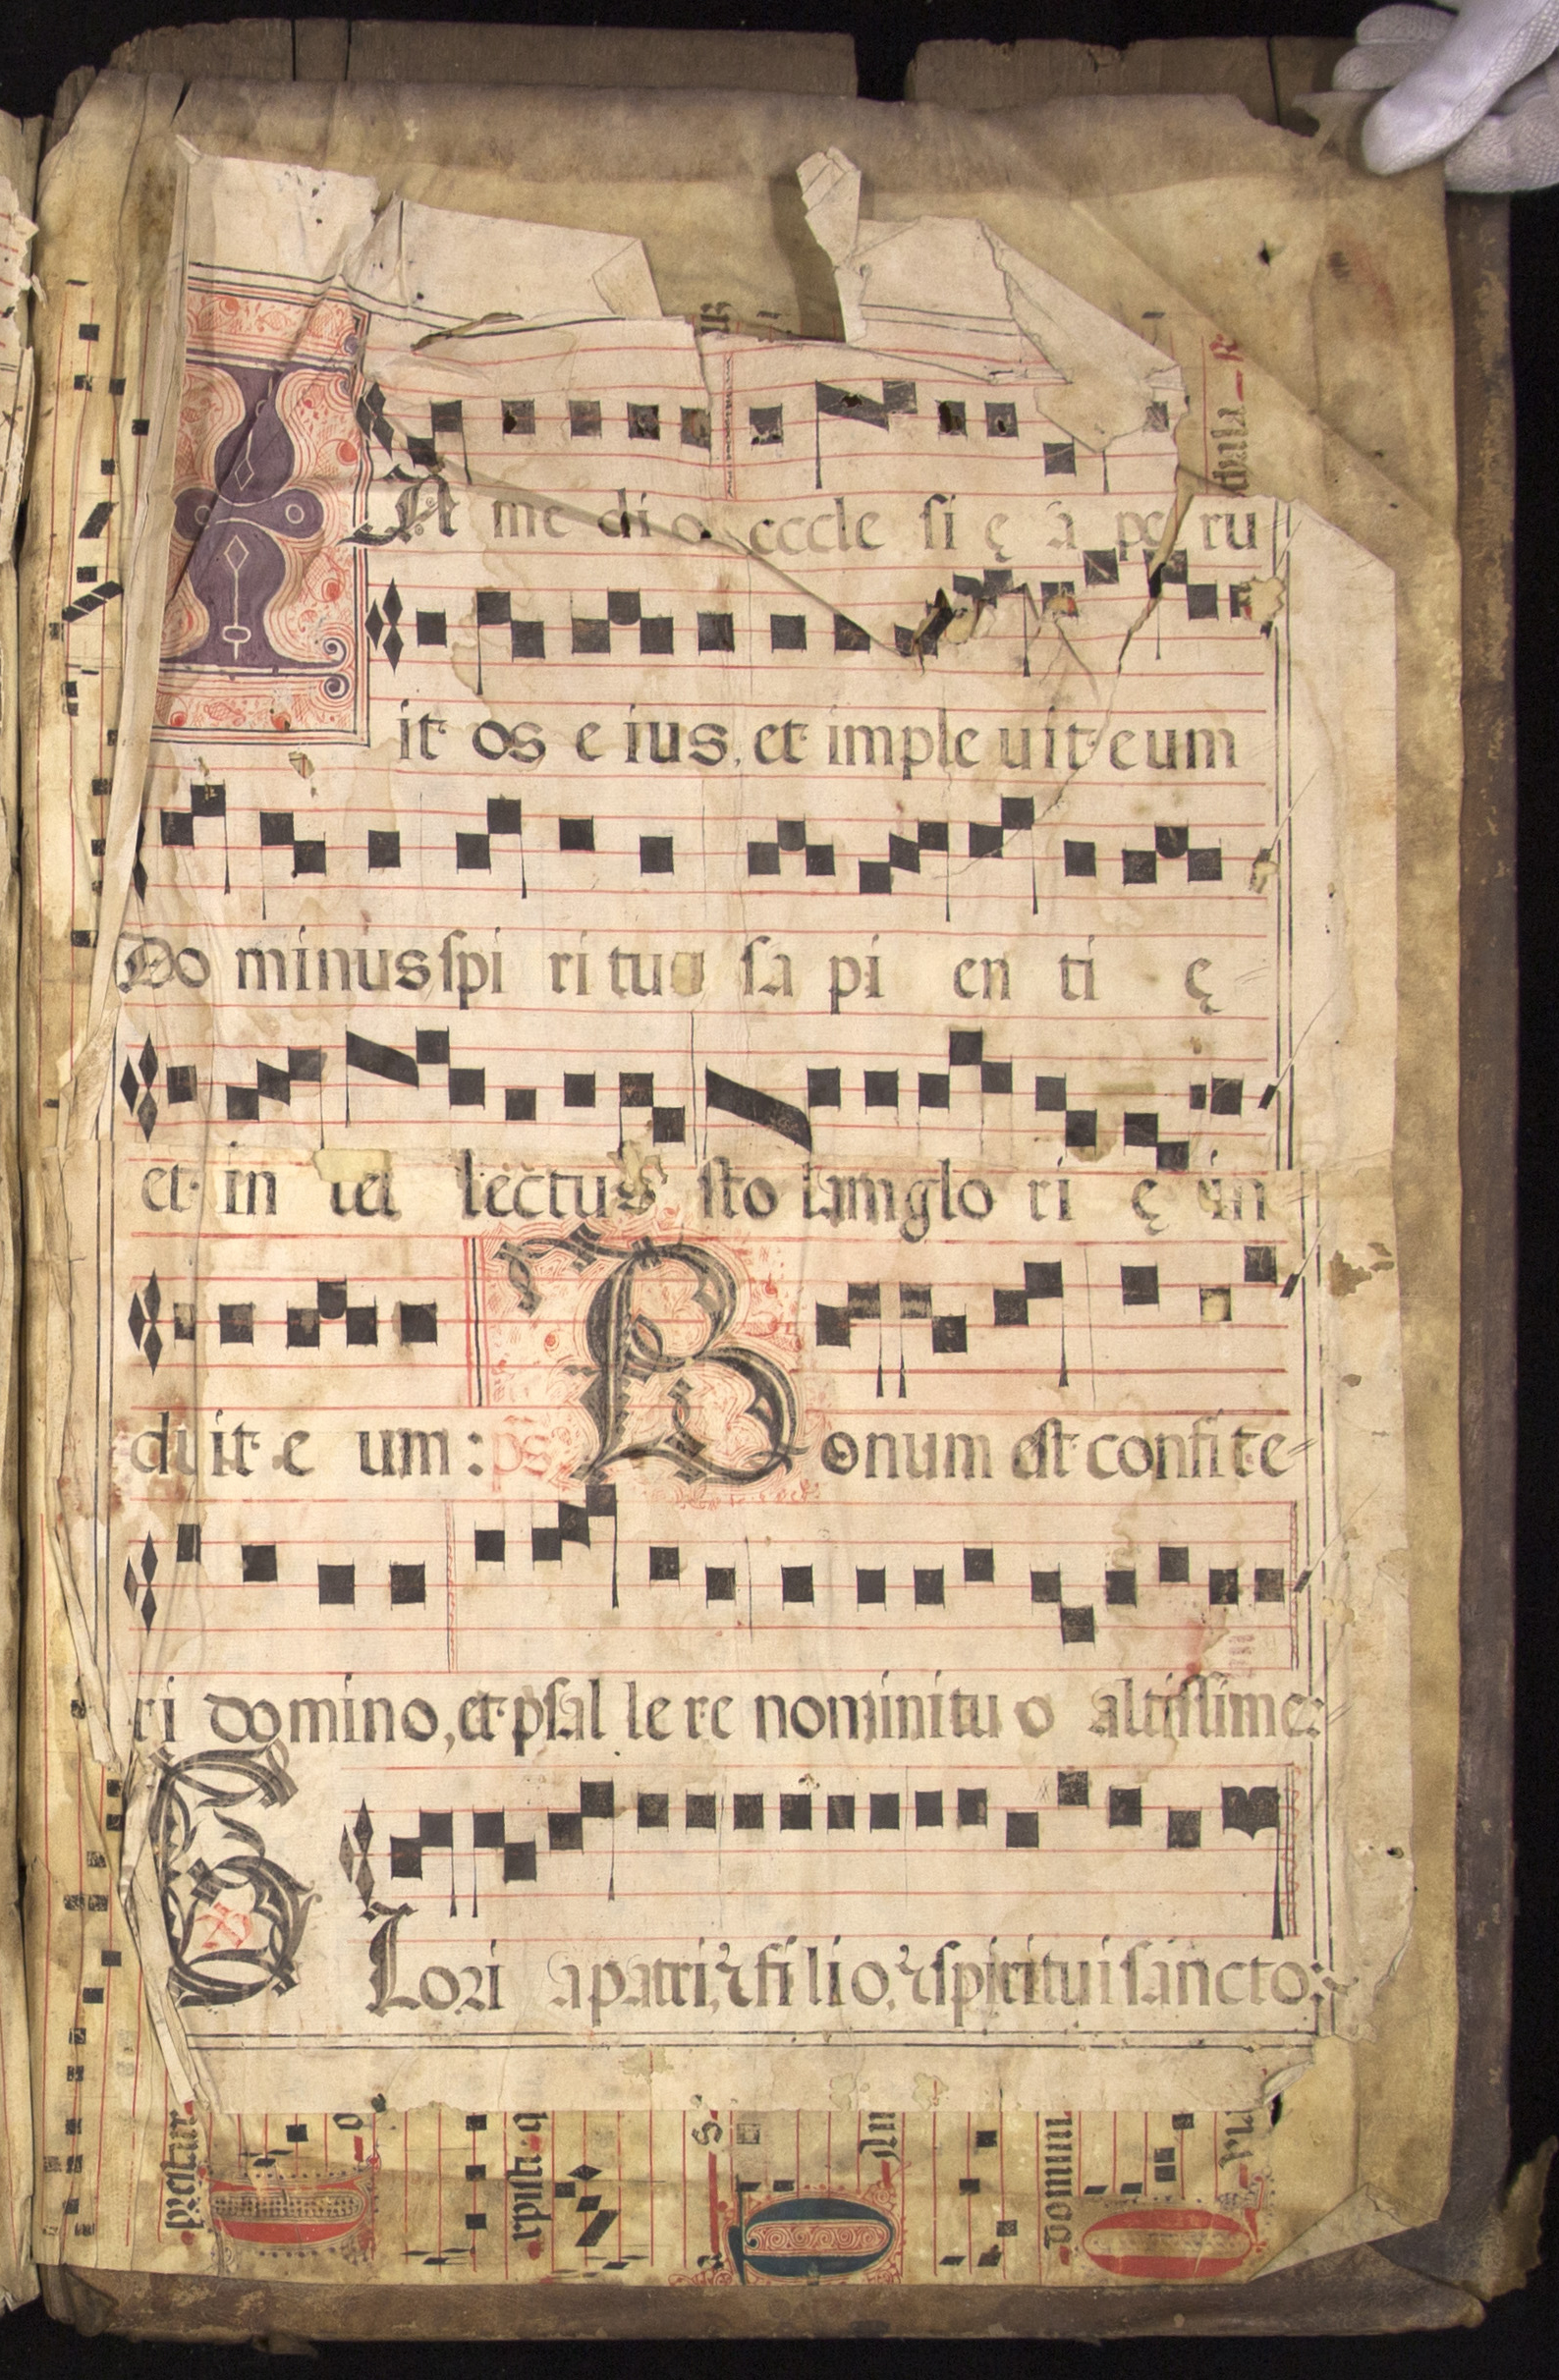 IN me di o eccle si ę a pe ru
it os e ius, et imple uit eum
Do minus spi ri tus sa pi en ti ę
et in tel lectus sto lam glo ri ę in
du it e um: ps Bonum est confite
ri domino, et psal le re nomini tu o altissime:
GLori a patri, & fi li o, & spiritui sancto:
domini